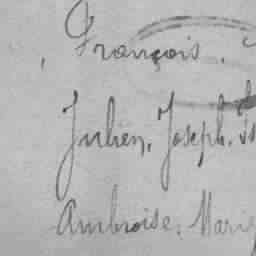 , François,
Julien, Joseph.
Ambroise, Marie